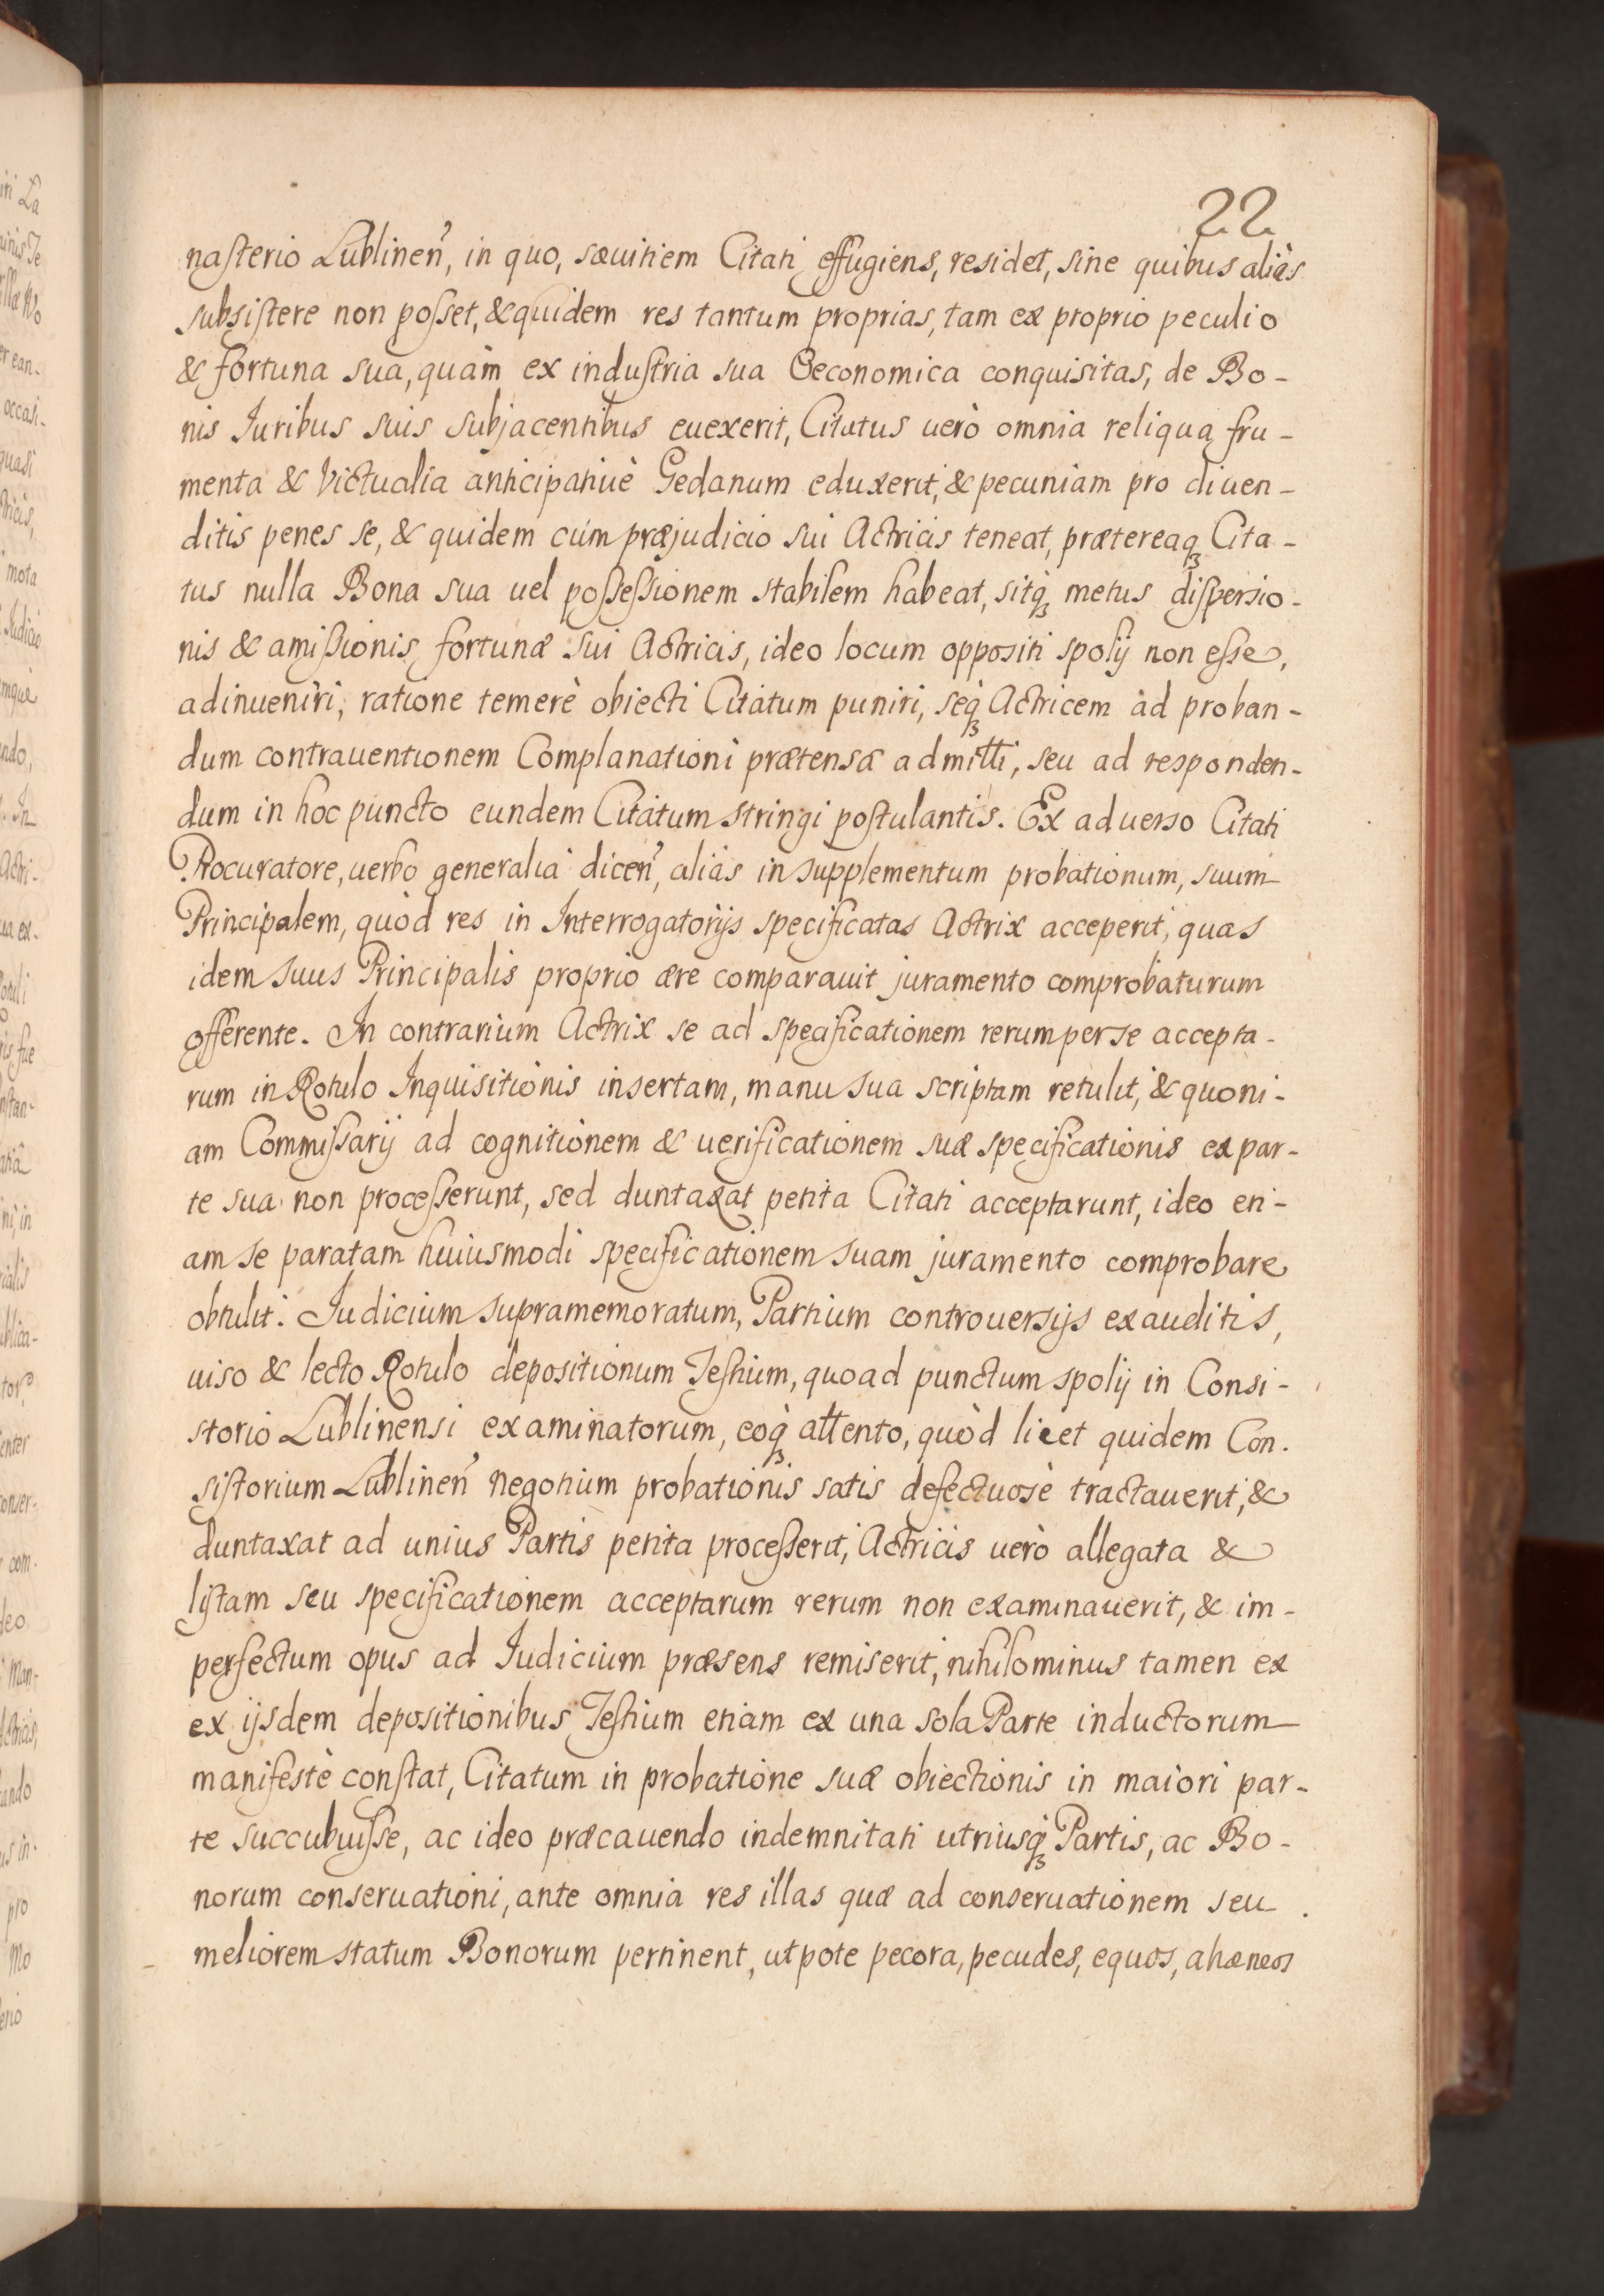 22
nasterio Lublinen̄, in quo, sæuitiem Citati effugiens, residet, sine quibus aliàs
subsistere non posset, & quidem res tantum proprias, tam ex proprio peculio
& fortuna sua, quàm ex industria sua Oeconomica conquisitas, de Bo-
nis Iuribus suis subjacentibus euexerit, Citatus uerò omnia reliqua fru-
menta & Victualia anticipatiuè Gedanum eduxerit, & pecuniam pro diuen-
ditis penes se, & quidem cum præjudicio sui Actricis teneat, prætereaq́ꝫ Cita-
tus nulla Bona sua uel possessionem stabilem habeat, sitq́ꝫ metus dispersio-
nis & amissionis fortunæ sui Actricis, ideo locum oppositi spolij non esse,
adinueniri, ratione temerè obiecti Citatum puniri, seq́ꝫ Actricem ad proban-
dum contrauentionem Complanationi prætensæ admitti, seu ad responden-
dum in hoc puncto eundem Citatum stringi postulantis. Ex aduerso Citati
Procuratore, uerbo generalia dicen̄, aliàs in supplementum probationum, suum
Principalem, quòd res in Interrogatorijs specificatas Actrix acceperit, quas
idem suus Principalis proprio ære comparauit juramento comprobaturum
offerente. In contrarium Actrix se ad specificationem rerum per se accepta-
rum in Rotulo Inquisitionis insertam, manu sua scriptam retulit, & quoni-
am Commissarij ad cognitionem & uerificationem suæ specificationis ex par-
te sua non processerunt, sed duntaxat petita Citati acceptarunt, ideo eti-
am se paratam huiusmodi specificationem suam juramento comprobare
obtulit. Iudicium supramemoratum, Partium controuersijs exauditis,
uiso & lecto Rotulo depositionum Testium, quoad punctum spolij in Consi-
storio Lublinensi examinatorum, eoq́ꝫ attento, quòd licet quidem Con.
sistorium Lublinen̄ negotium probationis satis defectuosè tractauerit, &
duntaxat ad unius Partis petita processerit, Actricis uerò allegata &
listam seu specificationem acceptarum rerum non examinauerit, & im-
perfectum opus ad Iudicium præsens remiserit, nihilominus tamen ex
ex ijsdem depositionibus Testium etiam ex una sola Parte inductorum
manifestè constat, Citatum in probatione suæ obiectionis in maiori par-
te succubuisse, ac ideo præcauendo indemnitati utriusq́ꝫ Partis, ac Bo-
norum conseruationi, ante omnia res illas quæ ad conseruationem seu
meliorem statum Bonorum pertinent, utpote pecora, pecudes, equos, ahæneos